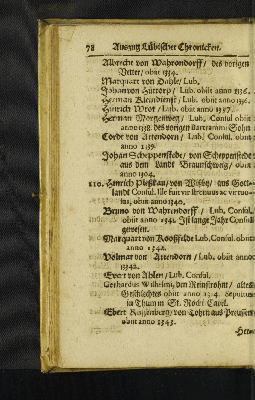 78 Auszug Lübischer Chronicken.
Albrecht von Wahrendorff / des vorigen
Vetter / obiit 1334.
Marquart von Dahle / Lub.
Johan von Hüttorp / Lub. obiit anno 1336.
Herman Kleindienst / Lub. obiit anno 1336.
Hinrich Wrot / Lub. obiit anno 1337.
Herman Morgenweg / Lub. Consul obiit
anno 1338. des vorigen Bartrammi Sohn
Cordt von Attendorn / Lub. Consul. obiit
anno 1339.
Johan Scheppenstede / von Scheppenstede
aus dem Landt Braunschweig / obiit
anno 1304.
110. Hinrich Pleßkau / von Wißby / aus Gott-
landt Consul. Ille fuit vir strenuus ac virtuo-
sus, obiit anno 1340.
Bruno von Wahrendorff / Lub. Consul.
obiit anno 1341. Ist lange Jahr Consul
gewesen.
Marquart von Kooßfelde Lub. Consul. obiit
anno 1342.
Volmar von Attendorn / Lub. obiit anno
1342.
Evert von Ahlen / Lub. Consul.
Gerhardus Wilhelmi, den
Geschlechtes obiit anno 1314. Sepultus
in Thum in St.
Ebert von Lohen aus Preussen
obiit anno 1343.